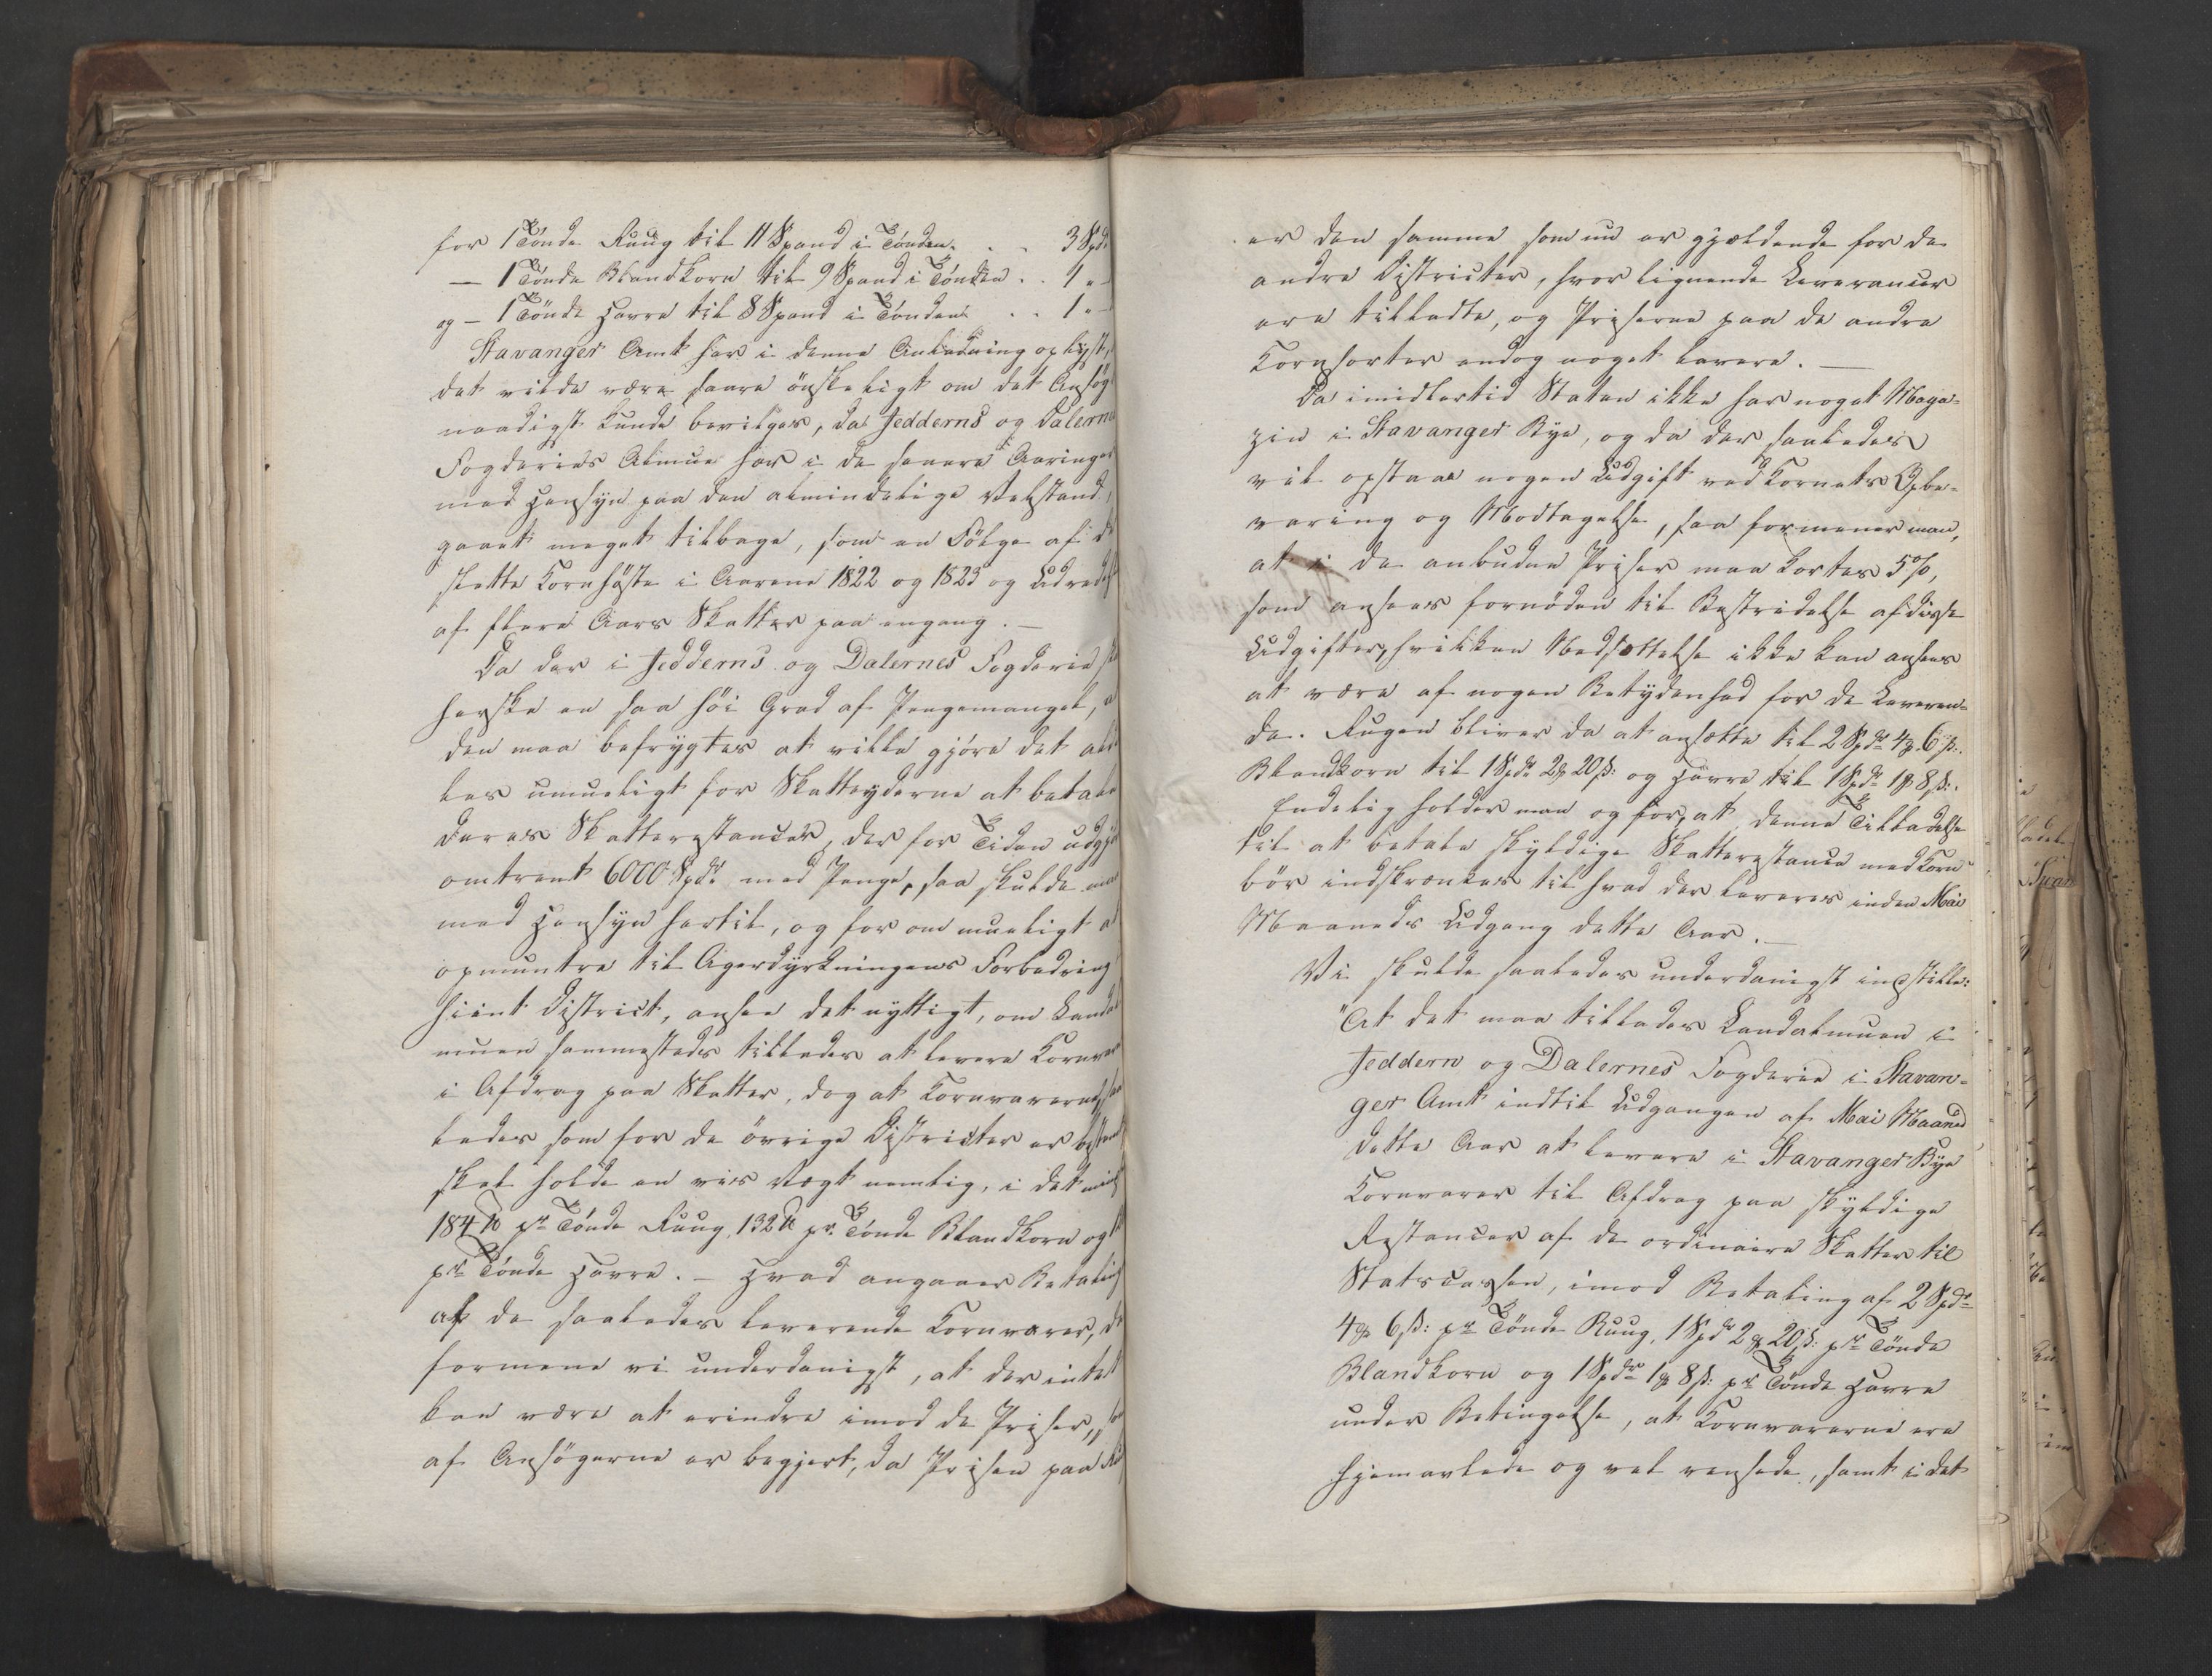 for 1 Tønde Ruug til 11 Spand i Tønden . . 3 Spd
— 1 Tønde Blandkorn til 9 Spand i Tønden . . 1 „ -
og - 1 Tønde Havre til 8 Spand i Tønden . . 1 „ -
Stavanger Amt har i denne Anledning oplyst,
det vilde være saare ønskeligt om det Ansøg
naadigst kunde bevilges, da Jedderns og Dalerne
Fogderies Almue har i de senere Aaringer
med Hensyn paa den almindelige Velstand,
gaaet meget tilbage, som en Følge af de
slette Kornhøste i Aarene 1822 og 1823 og Udredelse
af flere Aars Skatter paa engang. —
Da der i Jedderns og Dalernes Fogderie skal
herske en saa høi Grad af Pengemangel, at
den maa befrygtes at ville gjøre det alde
les umueligt for Skatteyderne at betale
deres Skatterestancer, der for Tiden udgjør
omtrent 6000 Spdr med Penge, saa skulde man
med Hensyn hertil, og for om mueligt at
opmuntre til Agerdyrkningens Forbedring i
hiint District, ansee det nyttigt, om Landal
muen sammesteds tillades at levere Kornvarer
i Afdrag paa Skatter, dog at Kornvarerne, saa
ledes som for de øvrige Districter er bestemt
skal holde en vis Vægt nemlig, i det mindste
184 ℔ pr Tønde Ruug, 132 ℔ pr. Tønde Blandkorn og
pr Tønde Havre. — Hvad angaaer Betaling
af de saaledes leverende Kornvarer, da
formene vi underdanigst, at der intet
kan være at erindre imod de Priser, som
af Ansøgerne er begjert, da Prisen paa Ru
er den samme som nu er gjældende for de
andre Districter, hvor lignende Leverancer
ere tilladte, og Priserne paa de andre
Kornsorter endog noget lavere. —
Da imidlertid Staten ikke har noget Maga-
zin i Stavanger Bye, og da der saaledes
vil opstaae nogen Udgift ved Kornets Opbe-
varing og Modtagelse, saa formener man,
at i de anbudne Priser maa kortes 5 %,
som ansees fornøden til Bestridelse af disse
Udgifter, hvilken Nedsættelse ikke kan ansees
at være af nogen Betydenhed for de Leveren-
de. Rugen bliver da at ansætte til 2 Spdr 4 ꝗ 6 ß:
Blandkorn til 1 Spdr 2 ꝗ 20 ß: og Havre til 1 Spdr 1 ꝗ 8 ß:.
Endelig holder man og for, at denne Tilladelse
til at betale skyldige Skatterestance med Korn
bør indskrænkes til hvad der leveres inden Mai
Maaneds Udgang dette Aar. —
Vi skulde saaledes underdanigst indstille:
"At det maa tillades Landalmuen i
Jeddern og Dalernes Fogderie i Stavan-
ger Amt indtil Udgangen af Mai Maaned
dette Aar at levere i Stavanger Bye
Kornvarer til Afdrag paa skyldige
Restancer af de ordinaire Skatter til
Statscassen, imod Betaling af 2 Spdr
4 ꝗ 6 ß: pr Tønde Ruug, 1 Spdr 2 ꝗ 20 ß: pr Tønde
Blandkorn og 1 Spdr 1 ꝗ 8 ß: pr Tønde Havre
under Betingelse, at Kornvarerne ere
hjemavlede og vel rensede, samt i det